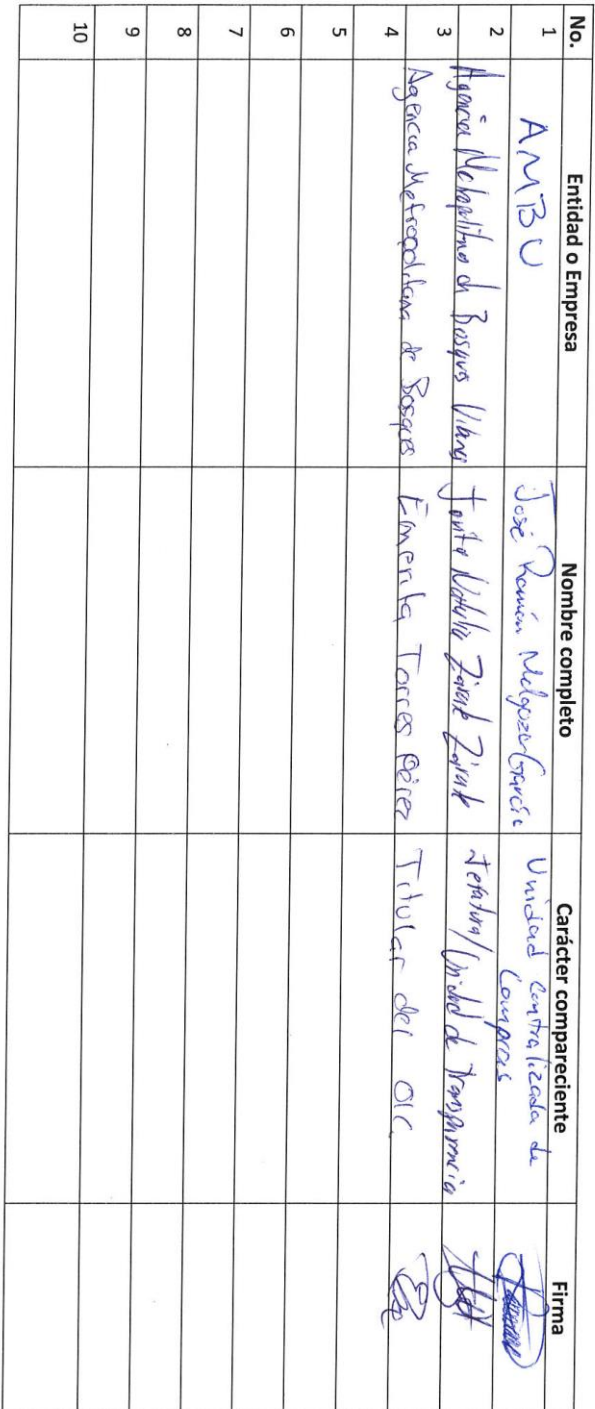 No. Entidad o Empresa Nombre completo Carácter compareciente Firma
1 AMBU José Ramón Melgoza García Unidad Centralizada de
Compras
2 Agencia Metropolitana de Bosques Urbanos Natalia Zárate Zárate Jefatura/Unidad de Transparencia
3 Agencia Metropolitana de Bosques Emerita Torres Pérez Titular del OIC
4
5
6
7
8
9
10